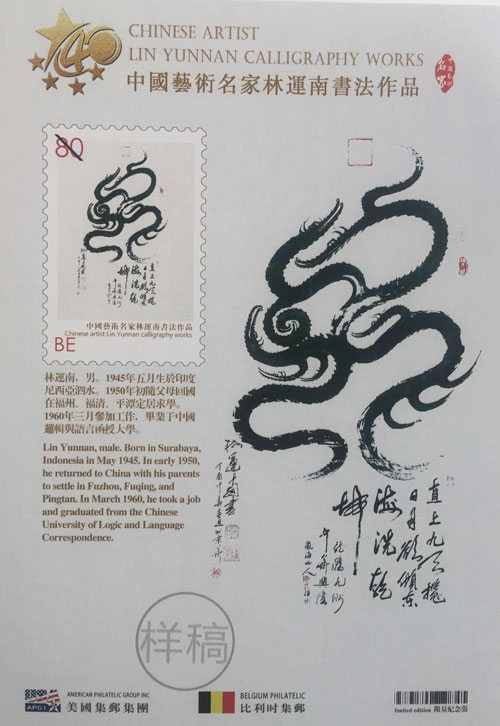 140
CHINESE ARTIST
LIN YUNNAN CALLIGRAPHY WORKS
中國藝術名家林運南書法作品
80
中國藝術名家林運南書法作品
Chinese artist Lin Yunnan calligraphy works
BE
林運南，男。1945年五月生於印度
尼西亞泗水。1950年初隨父母回國
在福州，福清、平潭定居求學。
1960年三月參加工作，畢業于中國
邏輯與語言函授大學。
Lin Yunnan, male. Born in Surabaya,
Indonesia in May 1945. In early 1950,
he returned to China with his parents
to settle in Fuzhou, Fuqing, and
Pingtan. In March 1960, he took a job
and graduated from the Chinese
University of Logic and Language
Correspondence.
直上九天攬
日月欲傾東
海洗乾
坤
林運南書
样稿
APGI
AMERICAN PHILATELIC GROUP INC
美國集郵集團
BELGIUM PHILATELIC
比利时集郵
limited edition 限量紀念張